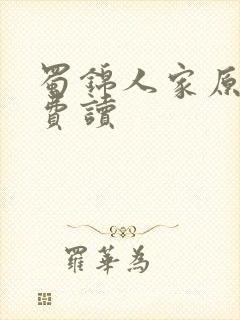 蜀錦人家原
費讀
羅華為